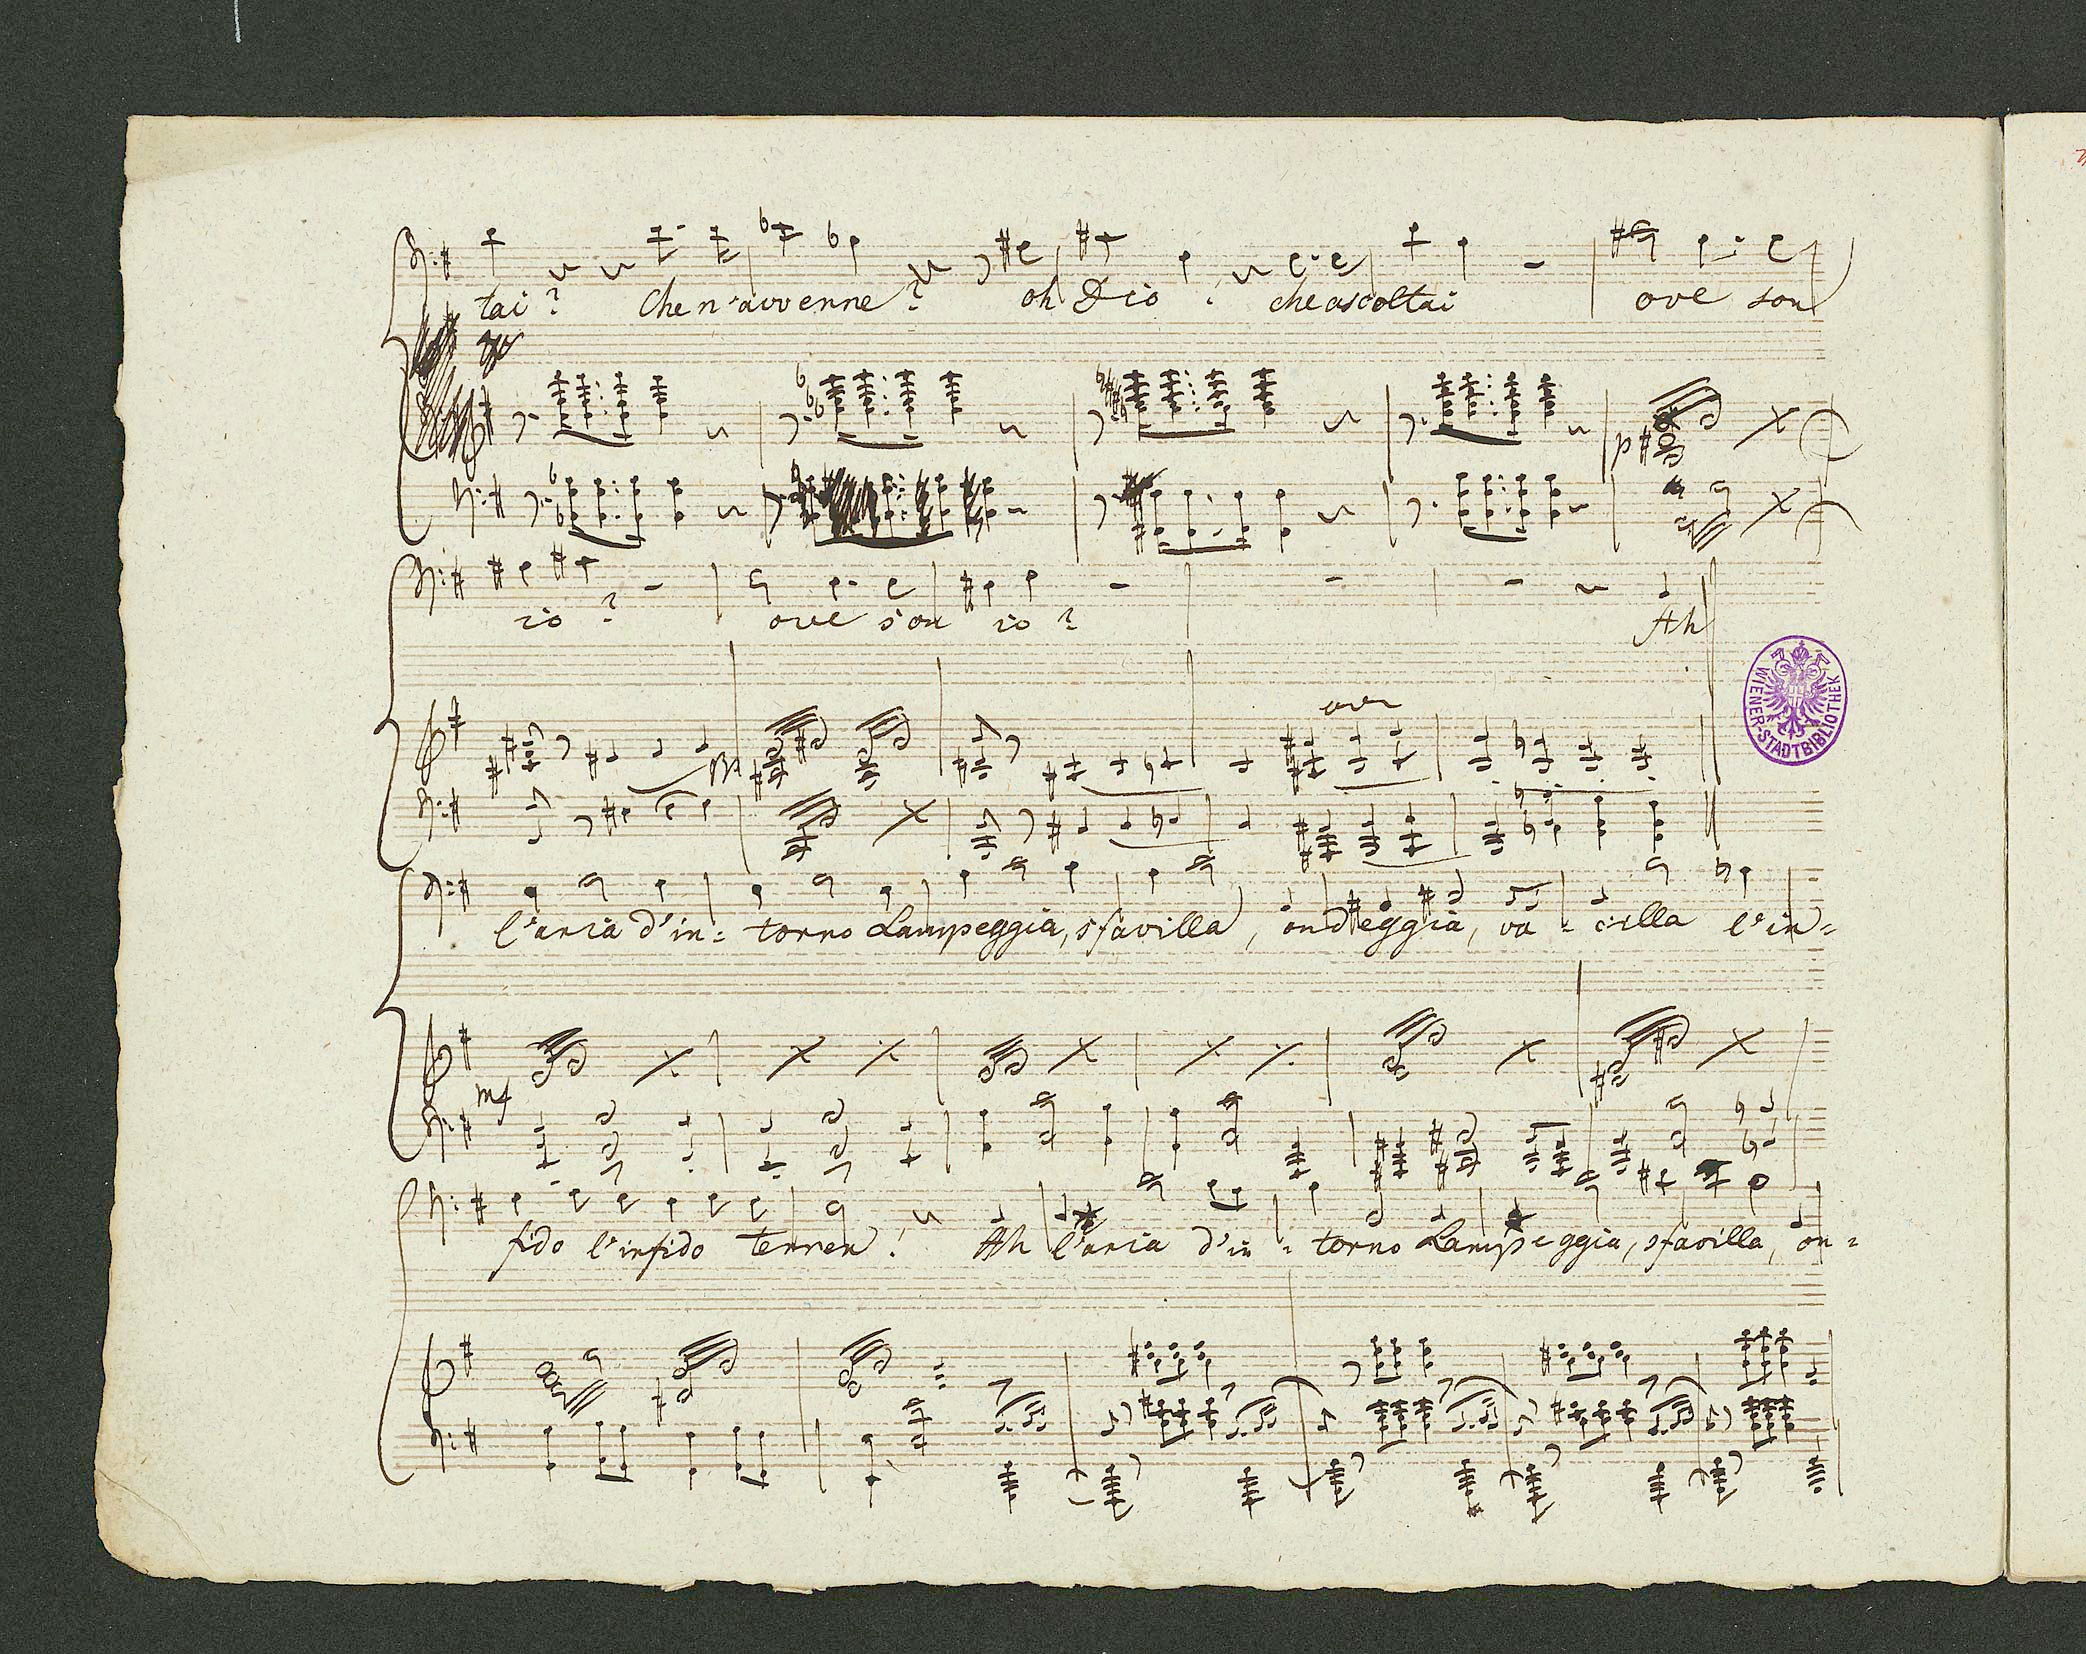 tai ? Che n'avvenne ? oh Dio ! che ascoltai ove son
p
io ? ove son io ? Ah
WIENER-STADTBIBLIOTHEK
l'aria d'in= torno Lampeggia, sfavilla, ondeggia, va = cilla l'in=
mf
fido l'infido terren ! Ah l'aria d'in = torno Lampeggia, sfavilla, on=